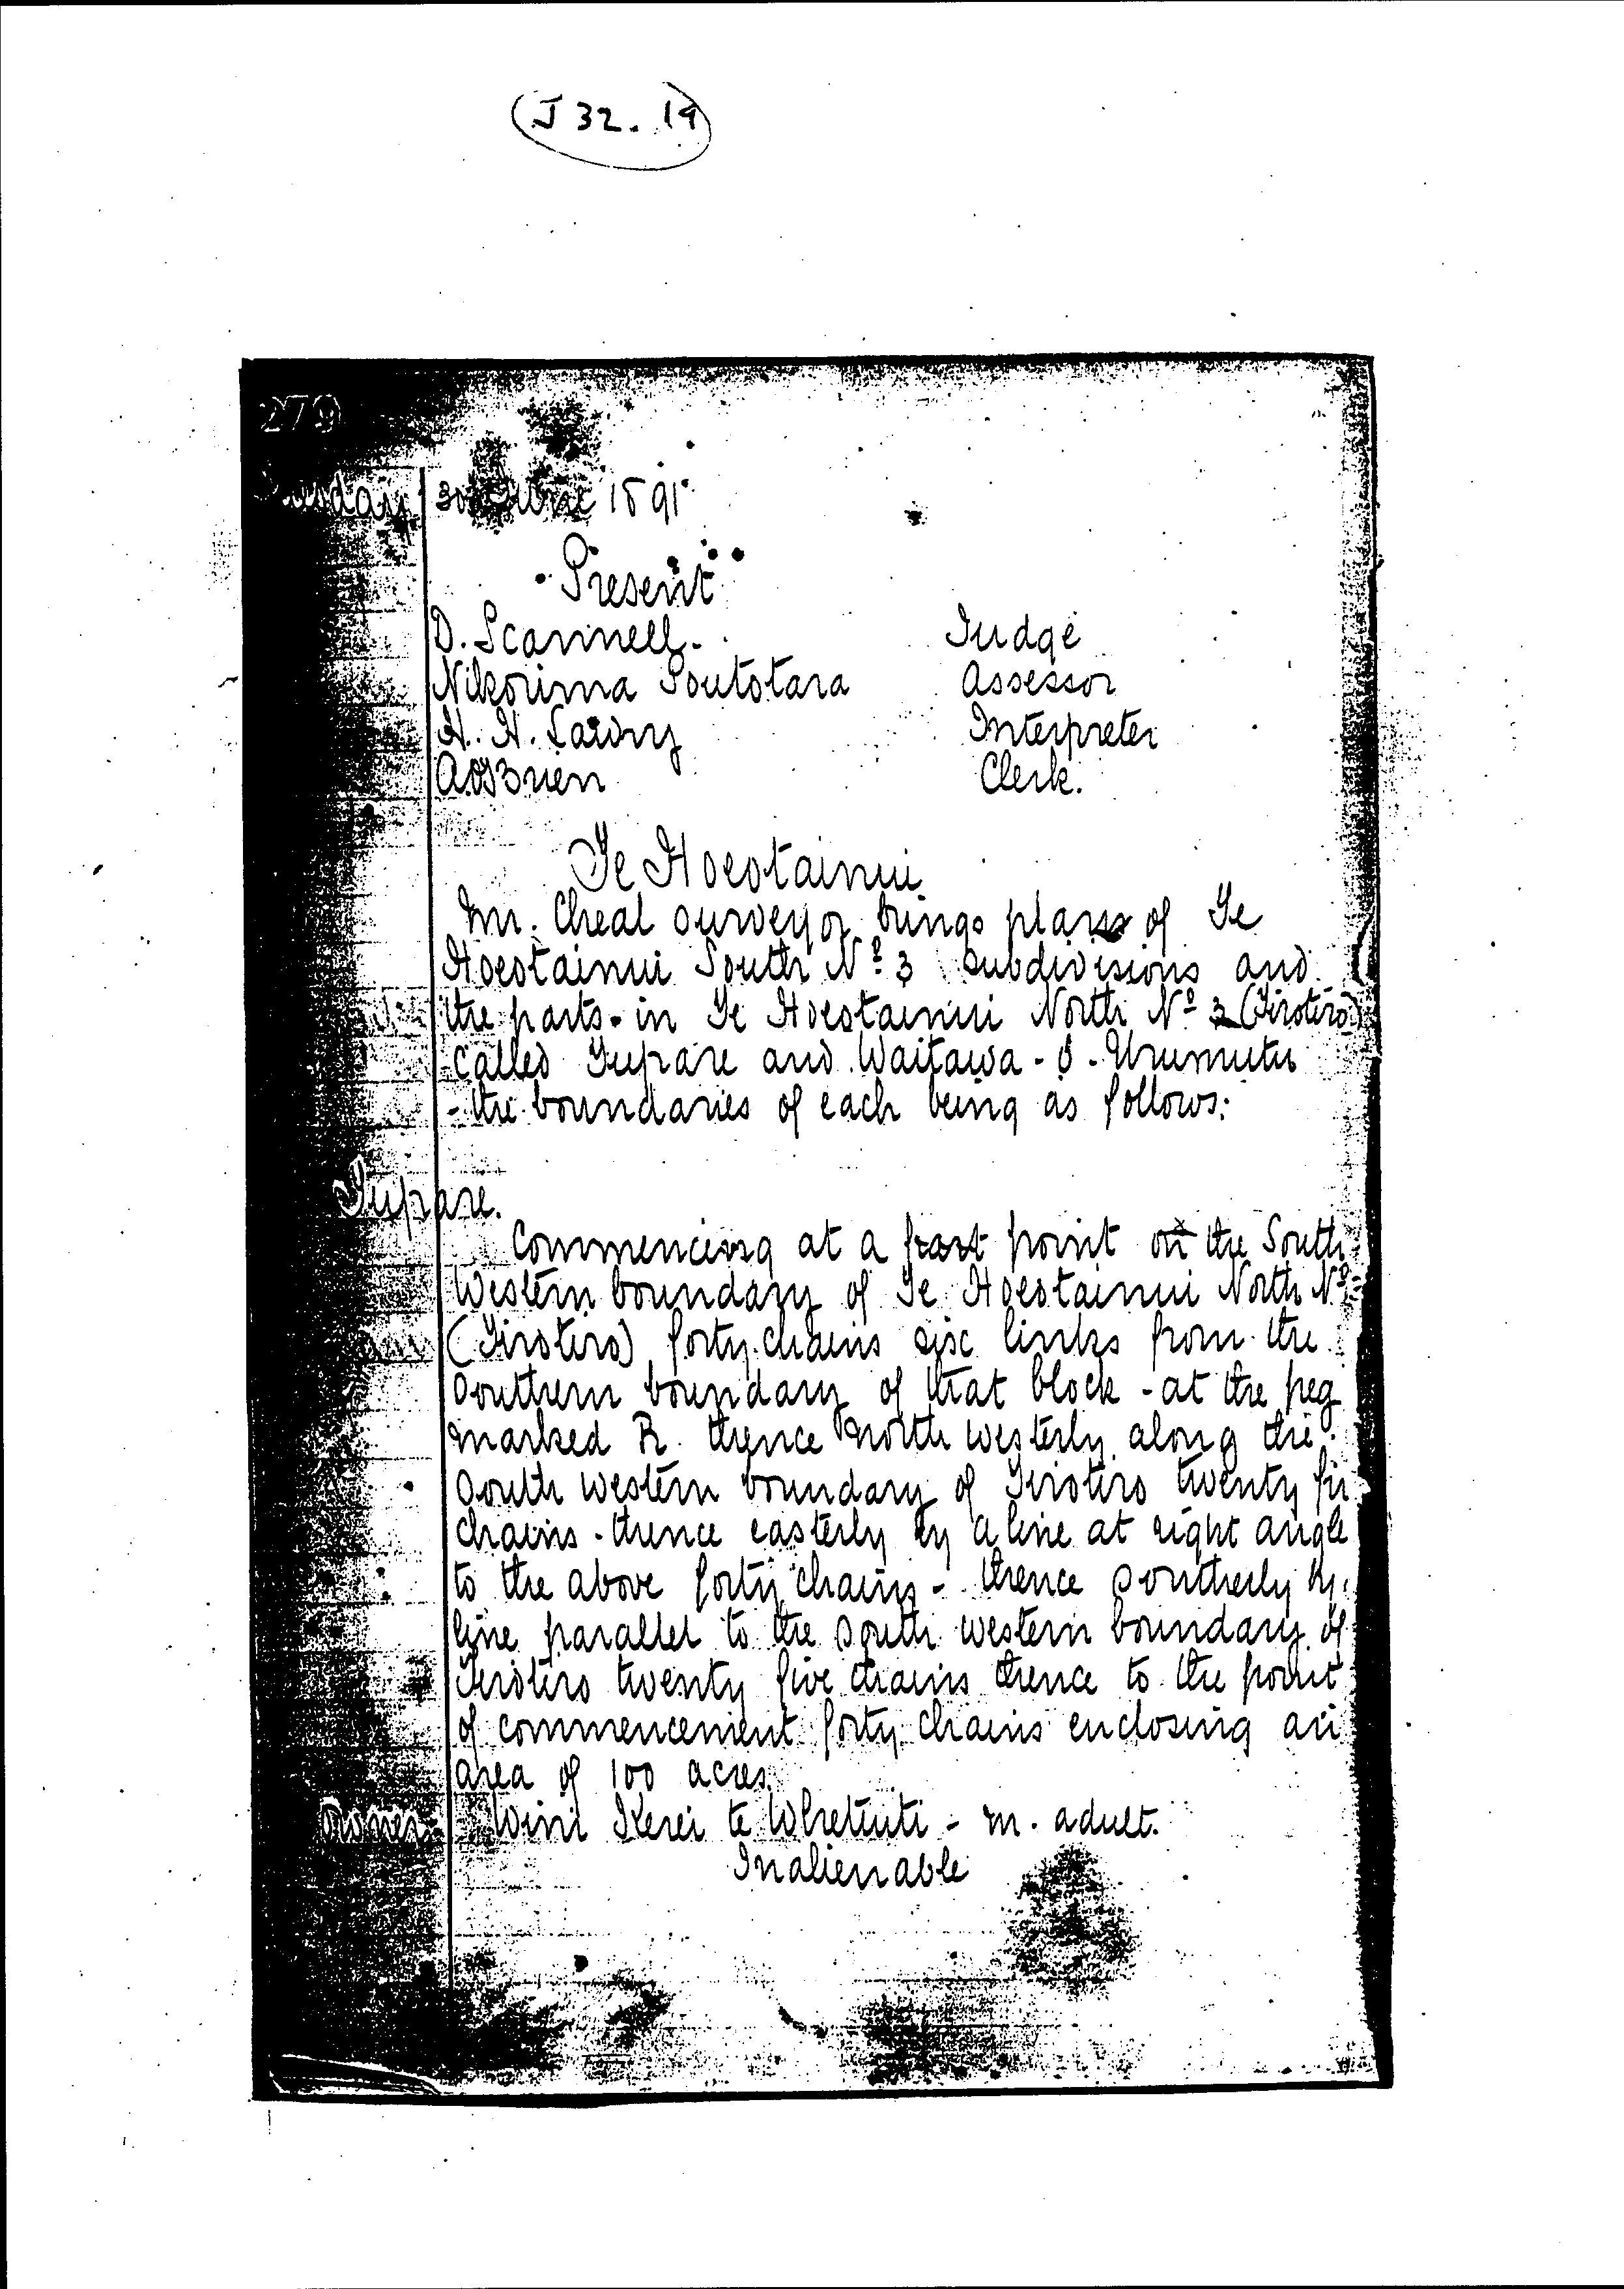 (J 32. 19)
279
Tuesday 30 June 1891
Present
D. Scannell. Judge
Nikorima Poutotara Assessor
H. H. Lawry Interpreter
A. O'Brien Clerk.
Te Hoeotainui
Mr. Cheal surveyor brings plans of Te
Hoeotainui South No. 3 subdivisions and
the parts - in Te Hoeotainui North No. (Tirotiro)
called Tupare and Waitawa - o - Urumutu
- the boundaries of each being as follows:
Tupare.
Commencing at a point on the South
Western boundary of Te Hoeotainui North No.
(Tirotiro) forty chains six links from the
Southern boundary of that block - at the peg
marked R. thence North westerly along the
South western boundary of Tirotiro twenty fi
chains - thence easterly by a line at right angle
to the above forty chains - thence southerly by
line parallel to the south western boundary of
Tirotiro twenty five chains thence to the point
of commencement forty chains enclosing an
area of 100 acres.
Owner Wini Kerei te Whetuiti - m. adult.
Inalienable